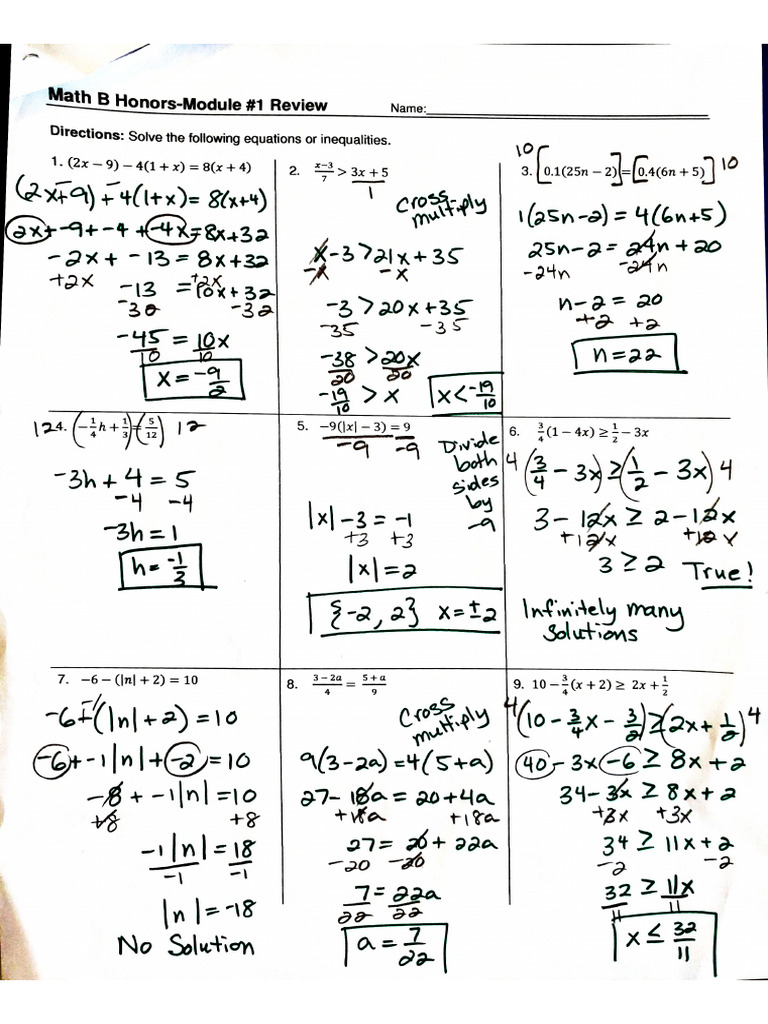 Math B Honors-Module #1 Review
Name:
Directions: Solve the following equations or inequalities.
1. (2x − 9) − 4(1 + x) = 8(x + 4)
(2x+-9)+-4(1+x)=8(x+4)
2x+-9+-4+-4x=8x+32
-2x+-13=8x+32
+2x +2x
-13 = 10x+32
-32 -32
-45 = 10x
10 10
x = -9/2
2. (x−3)/7 > 3x + 5
1
Cross multiply
x-3>21x+35
-x -x
-3>20x+35
-35 -35
-38>20x
20 20
-19/10 > x
x<-19/10
10 10
3. [0.1(25n − 2)]=[0.4(6n + 5)]
1(25n-2)=4(6n+5)
25n-2=24n+20
-24n -24n
n-2=20
+2 +2
n=22
12 12
4. (−1/4h + 1/3)=(5/12)
-3h+4=5
-4 -4
-3h=1
h=-1/3
5. −9(|x| − 3) = 9
-9 -9
Divide both sides by -9
|x|-3=-1
+3 +3
|x|=2
{-2, 2} x=±2
6. 3/4(1 − 4x) ≥ 1/2 − 3x
4(3/4-3x)≥(1/2-3x)4
3-12x≥2-12x
+12x +12x
3≥2 True!
Infinitely many
Solutions
7. −6 − (|n| + 2) = 10
-1
-6+(|n|+2)=10
-6+-1|n|+-2=10
-8+-1|n|=10
+8 +8
-1|n|=18
-1 -1
|n|=-18
No Solution
8. (3−2a)/4 = (5+a)/9
Cross multiply
9(3-2a)=4(5+a)
27-18a=20+4a
+18a +18a
27=20+22a
-20 -20
7=22a
22 22
a=7/22
9. 10 − 3/4(x + 2) ≥ 2x + 1/2
4(10-3/4x-3/2)≥(2x+1/2)4
40-3x-6≥8x+2
34-3x≥8x+2
+3x +3x
34≥11x+2
-2 -2
32≥11x
11 11
x≤32/11